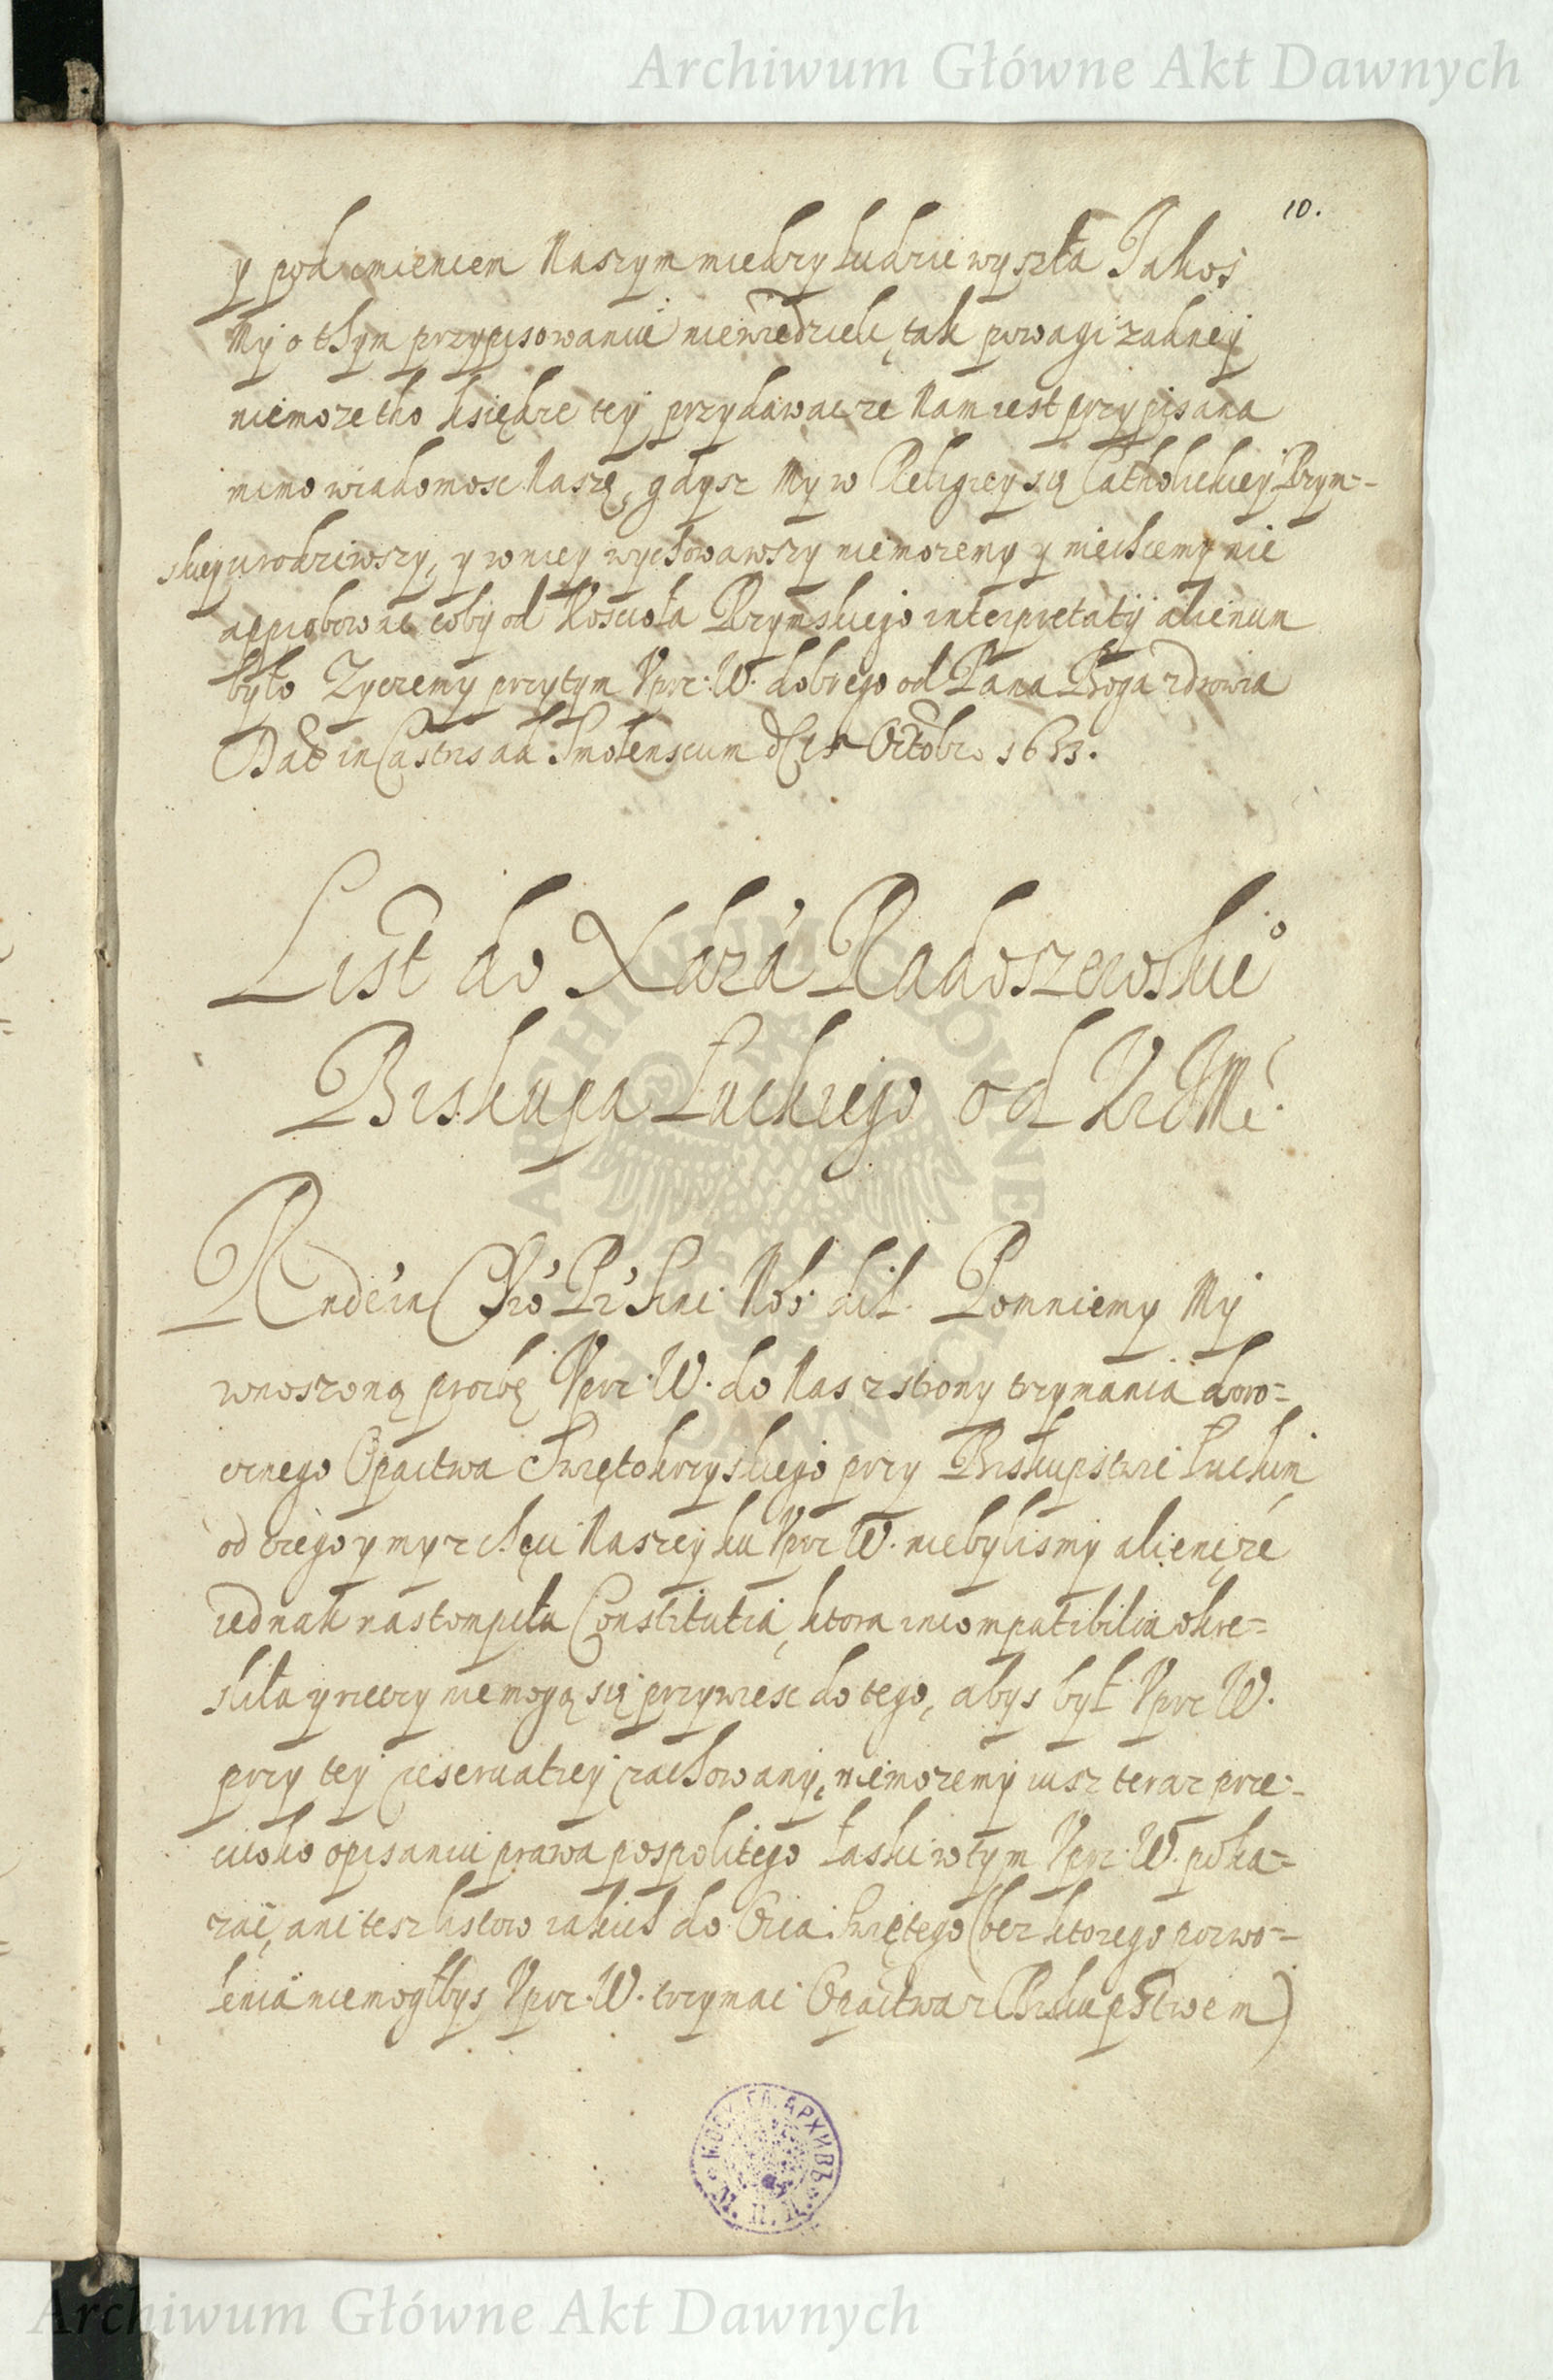 Archiwum Główne Akt Dawnych
10.
y pod imieniem Naszym miedzy ludzie wyszła Jakoś
My o thym przypisowaniu niewiedzieli, tak powagi zadney
niemoze tho księdze tey przydawac ze Nam iest przypisana
mimo wiadomosc Naszę, gdysz My w Religiey się Catholickiey Rzym-
skiey urodziwszy, y w niey wychowawszy niemozemy y niechcemy nic
approbowac coby od Kosciola Rzymskiego interpretatij alienum
było Zyczemy przytym Uprz: W. dobrego od Pana Boga zdrowia
Dat in Castris ad Smolenscum Octobr. 1633.
List do Xdza Radoszewskieº
Biskupa Łuckiego od Kr JMci.
Rnde in Chro Pr Sinc: Nob: dil. Pomniemy My
wnoszoną prozbę Uprz: W. do Nas z strony trzymania dwo-
cznego Opactwa Swiętokrzyskiego przy Biskupstwie Łuckim
od czego y my z chęci Naszey ku Uprz W. niebylismy alieni, ze
iednak nastompiła Constitutia, ktora incompatibilia okre-
sliła y rzeczy niemogą się przywiesc do tego, abys był Uprz W.
przy tey reservatiey zachowany, niemozemy iusz teraz prze-
ciwko opisaniu prawa pospolitego łaski w tym Uprz: W. poka-
zac, ani tesz listow zakich do Oica Swiętego (bez ktorego pozwo-
lenia niemogłbys Uprz: W. trzymac Opactwa z Biskupstwem)
МОСК. ГЛ. АРХИВЪ
Archiwum Główne Akt Dawnych